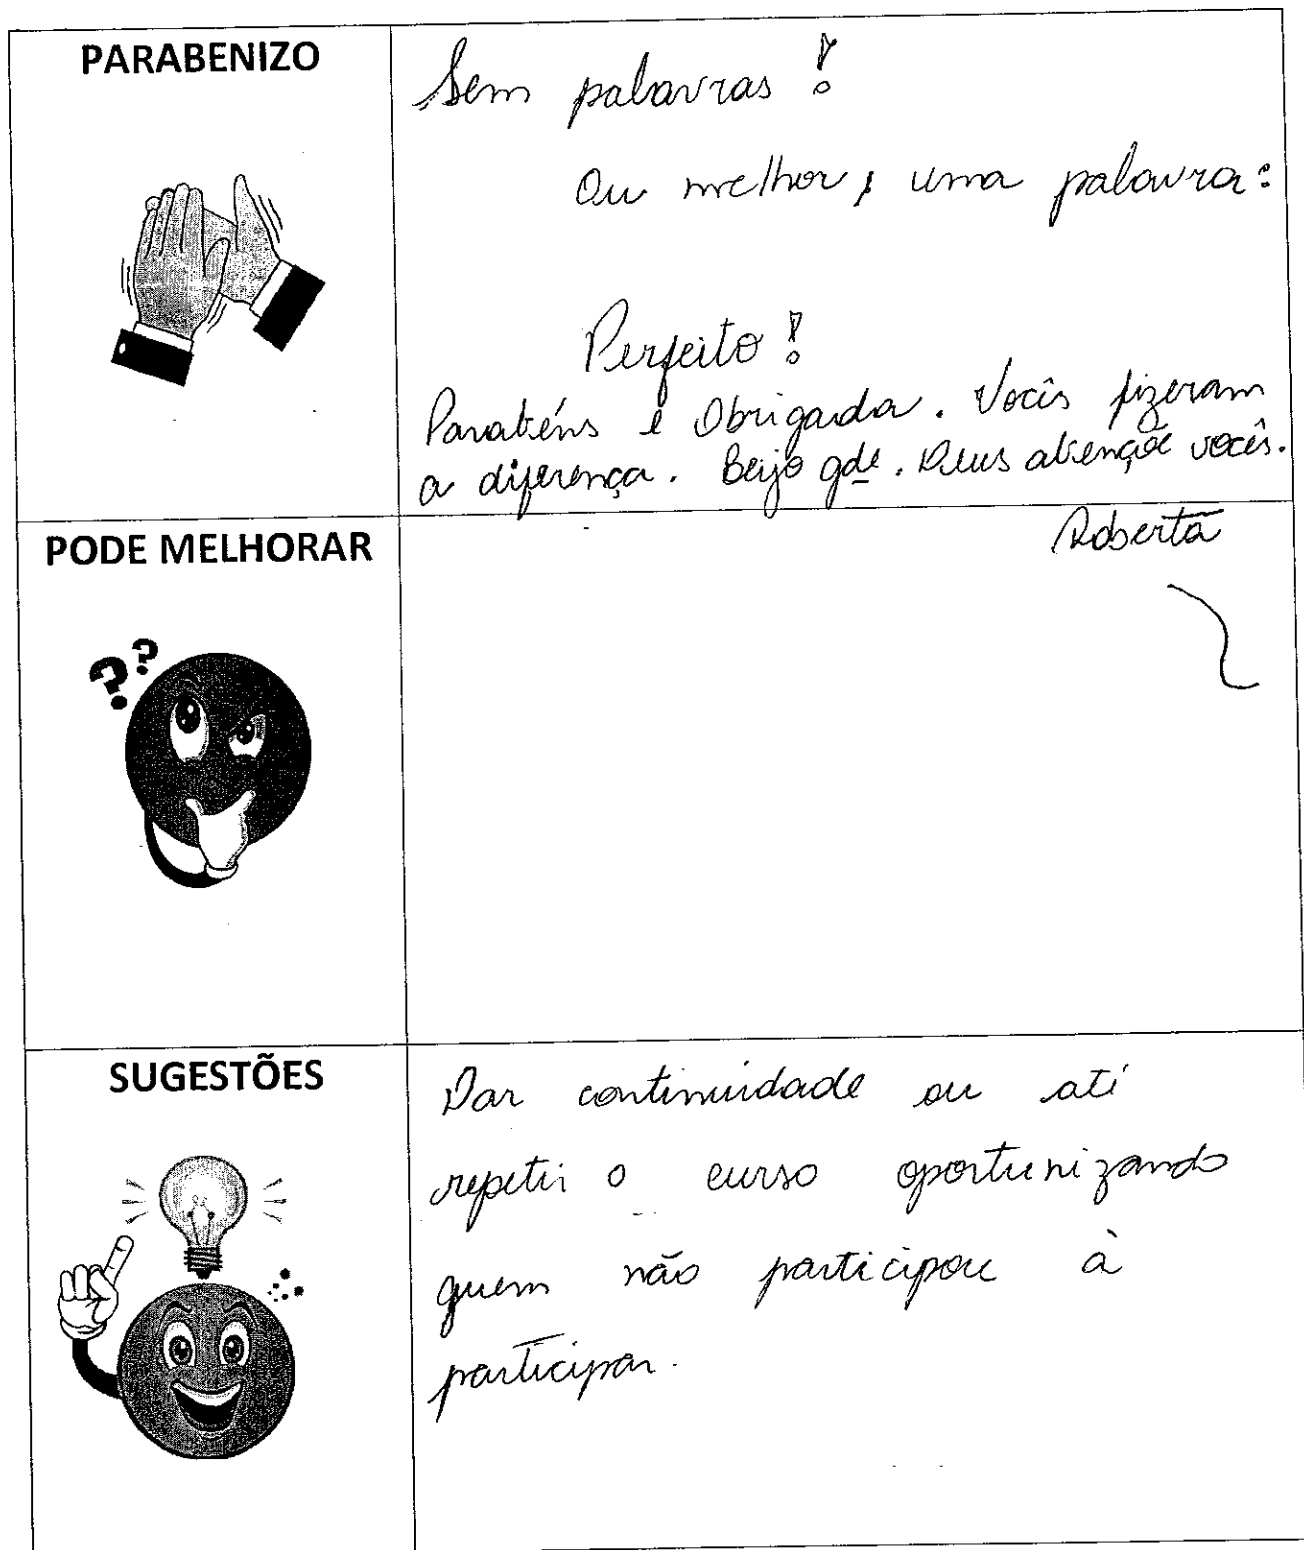 PARABENIZO
Sem palavras!
Ou melhor, uma palavra:
Perfeito!
Parabéns e Obrigada. Vocês fizeram
a diferença. Beijo gde. Deus abençoe vocês.
Roberta
PODE MELHORAR
??
SUGESTÕES
Dar continuidade ou até
repetir o curso oportunizando
quem não participou à
participar.